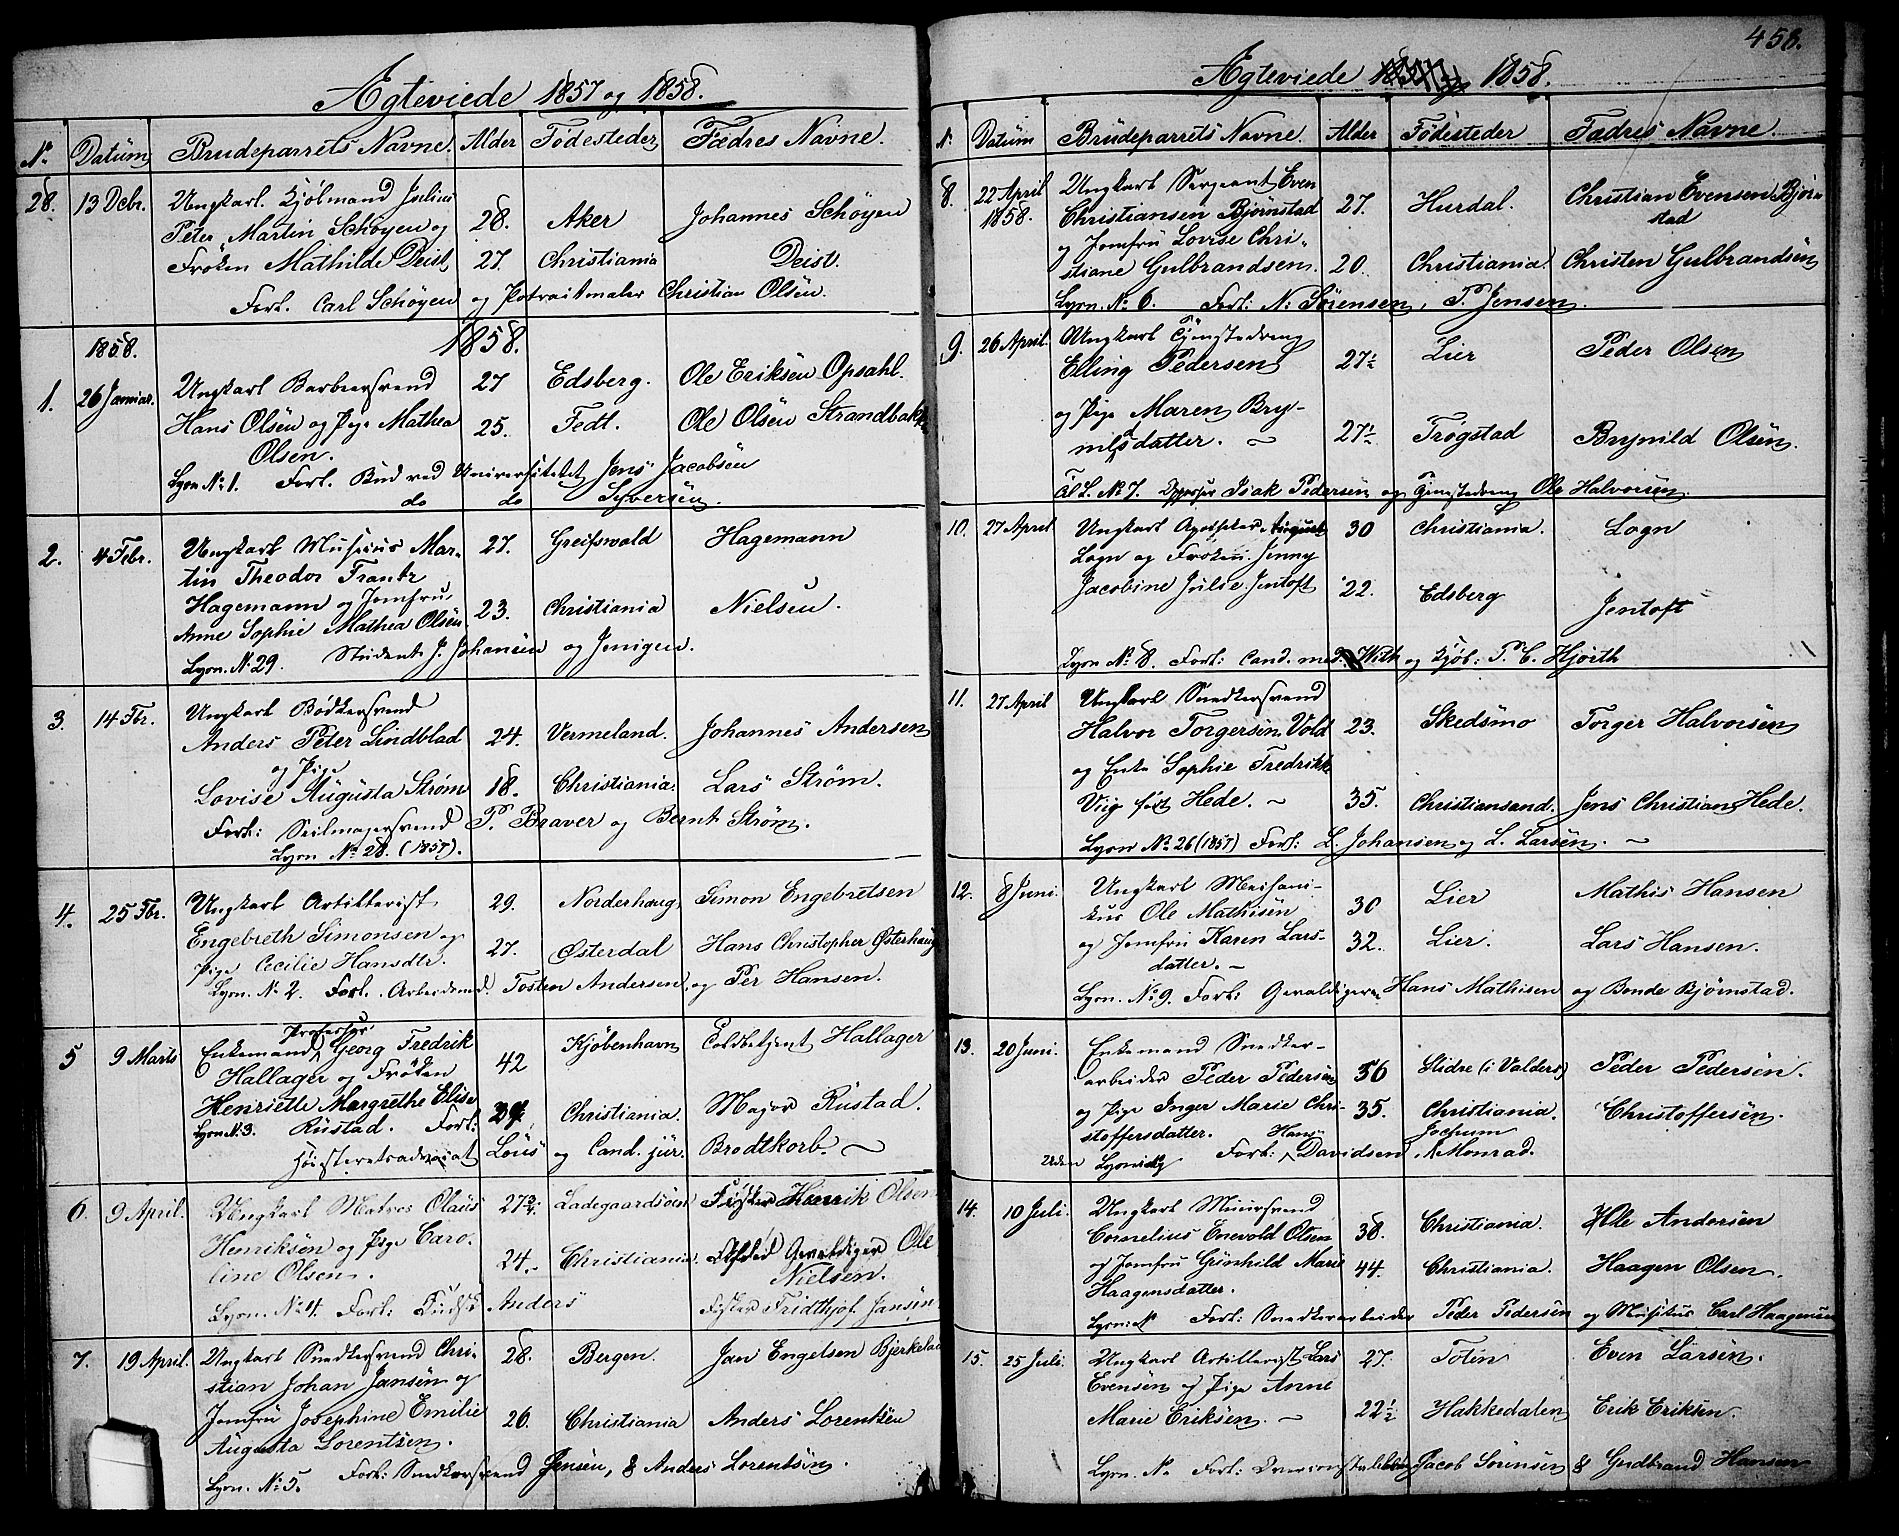 Ægteviede 1857 og 1858.
No Datum Brudeparrets Navne. Alder Fødesteder Fædres Navne.
28. 13 Decbr. Ungkarl. Kjøbmand Julius
Peter Martin Schøyen og 28. Aker Johannes Schøyen
Frøken Mathilde Deist, 27. Christiania Deist.
Forl. Carl Schøyen og Potraitmaler Christian Olsen.
1858. 1858.
1. 26 Januar. Ungkarl Barbeersvend 27 Edsberg. Ole Eriksen Opsahl.
Hans Olsen og Pige Mathea 25. Fedt. Ole Olsen Strandbak
Olsen.
Lysn No 1. Forl. Bud ved Universitetet Jens Jacobsen
do do Syversen.
2. 4 Febr. Ungkarl Musicus Mar- 27. Greifswald Hagemann
tin Theodor Frantz
Hagemann og Jomfru 23. Christiania Nielsen.
Anne Sophie Mathea Olsen
Lysn. No 29. Student J. Johansen og Jenigen.
3. 14 Fbr. Ungkarl Bødkersvend
Anders Peter Lindblad 24. Vermeland. Johannes Andersen
og Pige
Lovise Augusta Strøm 18. Christiania. Lars Strøm.
Forl: Seilmagersvend P. Braver og Bernt Strøm.
Lysn No 28. (1857).
4. 25 Fbr. Ungkarl Artillerist 29. Norderhaug, Simon Engebretsen
Engebreth Simonsen og 27. Østerdal Hans Christopher Østerhaug
Pige Cecilie Hansdtr.
Lysn. No 2. Forl. Arbeidsmd. Tosten Andersen, og Per Hansen.
Professor
5 9 Marts Enkemand Georg Fredrik 42 Kjøbenhavn Toldbetjent Hallager
Hallager og Frøken
Henriette Margrethe Elise 29, Christiania. Major Rustad.
Lysn No. 3. Rustad. Forl:
Høiesteretsadvocat Lous og Cand. jur. Brodtkorb.
6. 9 April. Ungkarl Matros Olaus 27¾ Ladegaardsøen Fisker Hinrik Olsen
Henriksen og Pige Caro- 24. Christiania. Afdød Gevaldiger Ole
line Olsen. Nielsen.
Lysn. No 4. Forl: Anders Fisker Fridthjof Jansen
7. 19 April. Ungkarl Snedkersvend Chri- 28. Bergen. Jan Engelsen Bjerkelad
stian Johan Jansen og
Jomfru Josephine Emilie 26. Christiania Anders Lorentsen
Augusta Lorentsen.
Lysn. No 5. Forl: Snedkersvend Jensen, & Anders Lorentsen.
458.
Ægteviede 1858.
No Datum Brudeparrets Navne. Alder Fødesteder Fædres Navne.
8. 22 April Ungkarl Sergeant Even
1858. Christiansen Bjørnstad 27. Hurdal. Christian Evensen Bjørn
stad
og Jomfru Lovise Chri-
stiane Gulbrandsen. 20. Christiania. Christen Gulbrandsen
Lysn. No 6. Forl: N: Sørensen, P. Jensen.
9. 26 April. Ungkarl Tjenestedreng
Elling Pedersen 27½ Lier Peder Olsen
og Pige Maren Bry-
nildsdatter. 27½ Trøgstad Brynild Olsen.
Til L. No 7. Isak Pedersen og Tjenestedreng Ole Halvorsen.
10. 27 April Ungkarl Apotheker August 30 Christiania. Logn
Logn og Frøken Jenny
Jacobine Julie Jentoft 22. Edsberg Jentoft
Lysn No 8. Forl: Cand. med. With og Kjøb: P. C. Hjorth
11. 27 April Ungkarl Snedkersvend
Halvor Torgersen Vold 23. Skedsmo Torger Halvorsen
og Enke Sophie Fredrikke
Viig født Hede. 35. Christiansand. Jens Christian Hede.
Lysn No 26 (1857) Forl: L. Johansen og L. Larsen.
12. 8 Juni. Ungkarl Mechani- Lier Mathis Hansen
kus Ole Mathisen 30
og Jomfru Karen Lars- 32. Lier. Lars Hansen.
datter.
Lysn. No 9. Forl: Gevaldigeren Hans Mathisen og Bonde Bjørnstad.
13. 20 Juni. Enkemand Snedker-
arbeider Peder Pedersen 56 Slidre (i Valders) Peder Pedersen.
og Pige Inger Marie Chri- 35. Christiania. Christoffersen.
stoffersdatter. Hans Jochum
Uden Lysning Forl: Davidsen, Monrad.
14. 10 Juli. Ungkarl Muursvend
Cornelius Enevold Olsen 38. Christiania. Ole Andersen
og Jomfru Gunhild Marie 44. Christiania. Haagen Olsen.
Haagensdatter.
Lysn. No Forl: Snedkerarbeider Peder Pedersen og Musikus Carl Haagensen
15. 25 Juli. Ungkarl Artillerist Lars 27. Toten Even Larsen.
Evensen og Pige Anne
Marie Eriksen. 22½ Hakkedalen Erik Eriksen.
Lysn. No Forl: Jacob Sørensen & Gudbrand Hansen